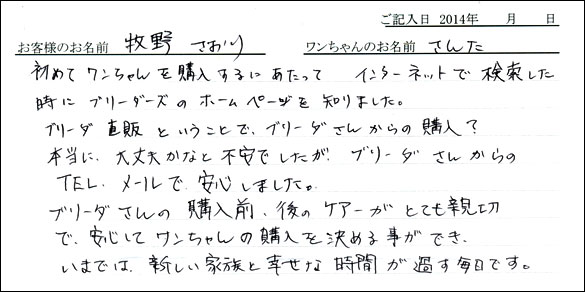 ご記入日 2014年 月 日
お客様のお名前 牧野 さおり ワンちゃんのお名前 さんた
初めてワンちゃんを購入するにあたって インターネットで検索した
時にブリーダーズのホームページを知りました。
ブリーダ直販ということで、ブリーダさんからの購入?
本当に、大丈夫かなと不安でしたが、ブリーダさんからの
TEL、メールで安心しました。
ブリーダさんの購入前、後のケアーがとても親切
で、安心してワンちゃんの購入を決める事ができ、
いまでは、新しい家族と幸せな時間が過す毎日です。